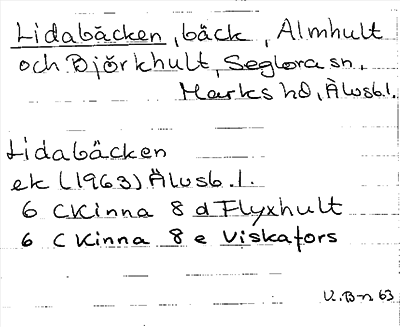 Lidabäcken, bäck, Almhult
och Björkhult, Seglora sn,
Marks hd, Älvsb.l.
Lidabäcken
ek (1963) Älvsb.l.
6 C Kinna 8 d Flyxhult
6 C Kinna 8 e Viskafors
V.B-n 63